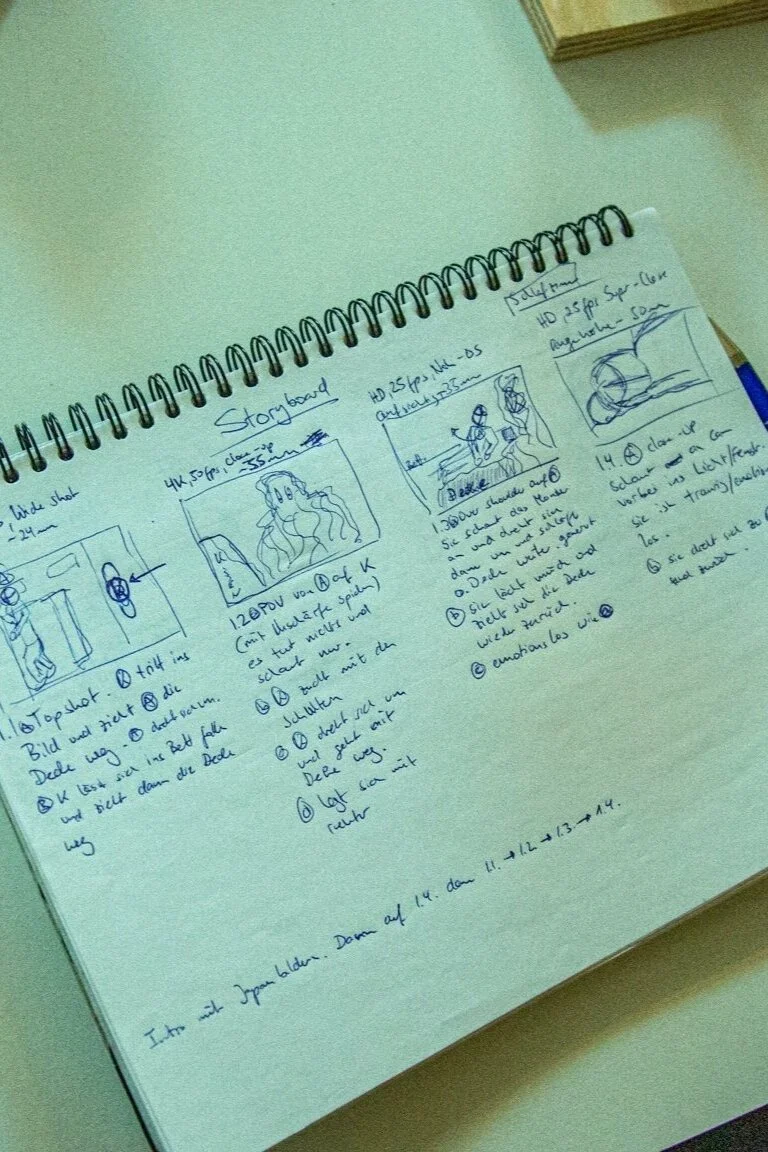 Storyboard
Wide shot
- 24mm
1.1 Ⓐ Topshot. Ⓚ tritt ins
Bild und zieht Ⓐ die
Decke weg.
Ⓑ K lässt sich ins Bett fallen
und zieht dann die Decke
weg
4K, 50fps, close-up
- 55mm
1.2 Ⓐ POV von Ⓐ auf K
(mit Unschärfe spielen)
es tut nichts und
schaut nur.
Ⓑ Ⓚ zuckt mit den
Schultern
Ⓒ Ⓚ dreht sich um
und geht mit
Decke weg.
Ⓓ legt sich mit
runter
HD, 25fps, Nah - OS
Aufsichtig - 35mm
Bett
Decke
1.3 Ⓐ Over shoulder auf Ⓐ
Sie schaut das Monster
an und dreht sich
dann um und schläft
o. Decke weiter. genervt
Ⓑ Sie lacht müde und
zieht sich die Decke
wieder zurück.
Ⓒ emotionslos wie Ⓐ
HD, 25fps Super-Close
Augenhöhe - 50mm
1.4. Ⓐ close-up
Schaut an Cam
vorbei ins Licht/Fenst.
Sie ist traurig/emotions
los.
Ⓑ sie dreht sich zu
und zurück.
Intro mit Japanbildern. Dann auf 1.4. dann 1.1. → 1.2 → 1.3. → 1.4.